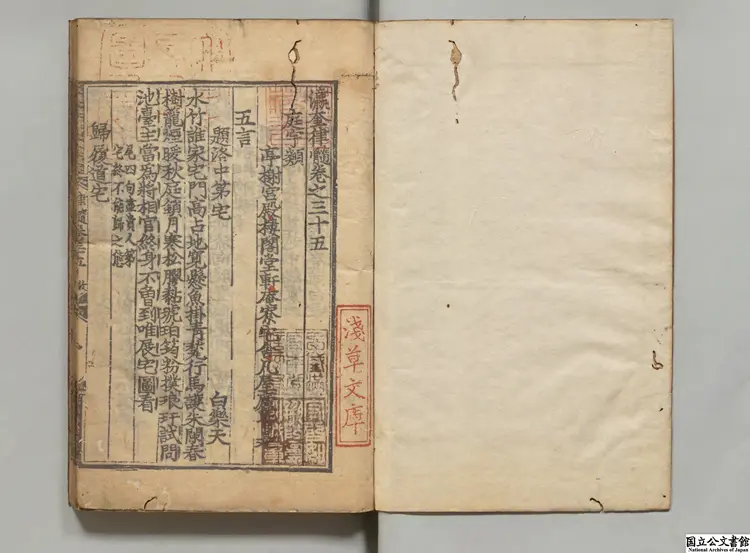 瀛奎律髓卷之三十五
庭宇類
亭榭宮殿樓閣堂軒庵寮宅舍
五言
題洛中第宅 白樂天
水竹誰家宅門高占地寬懸魚掛青甃行馬護朱闌春
樹籠煙暖秋庭鎖月寒松膠黏琥珀筠粉撲琅玕試問
池臺主當爲將相官終身不曾到唯展宅圖看
尾四句盡貴人第
宅終不能歸之態
歸履道宅
淺草文庫
国立公文書館
National Archives of Japan